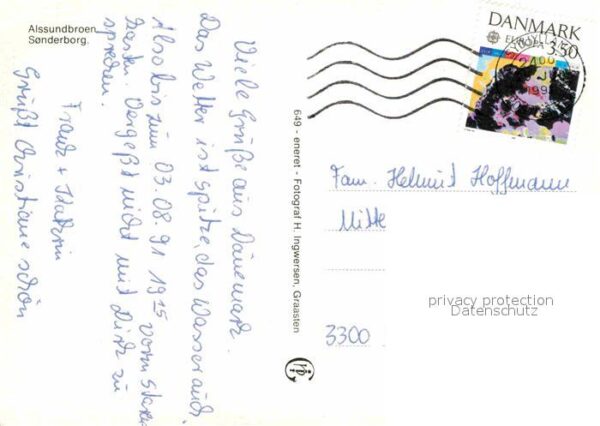 Alssundbroen
Sønderborg.
Viele Grüße aus Dänemark.
Das Wetter ist spitze, das Wasser auch.
Also bis zum 03.08.91 19¹⁵ vorm
Kasten. Vergeßt nicht mit Dirk zu
sprechen.
Franz + Kathrin
Grüßt Christiane schön
649 - eneret - Fotograf H. Ingwersen, Graasten
DANMARK
EUROPA
3.50
Fam. Helmut Hoffmann
Mitte
3300
privacy protection
Datenschutz